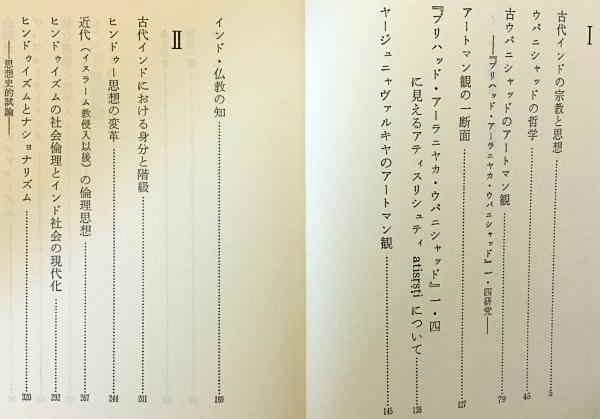 I
古代インドの宗教と思想 5
ウパニシャッドの哲学 45
古ウパニシャッドのアートマン観 79
――『ブリハッド・アーラニヤカ・ウパニシャッド』一・四研究――
アートマン観の一断面 127
『ブリハッド・アーラニヤカ・ウパニシャッド』一・四
に見えるアティスリシュティ atisṛṣṭi について 138
ヤージュニャヴァルキヤのアートマン観 145
インド・仏教の知 189
II
古代インドにおける身分と階級 201
ヒンドゥー思想の変革 244
近代(イスラーム教侵入以後)の倫理思想 267
ヒンドゥイズムの社会倫理とインド社会の現代化 292
ヒンドゥイズムとナショナリズム 320
――思想史的試論――